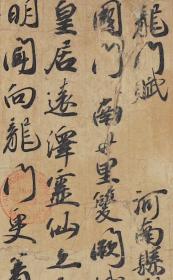 龍門賦 河南縣
國門南廿里雙闕
皇居遠澤靈仙之
明開向龍門更